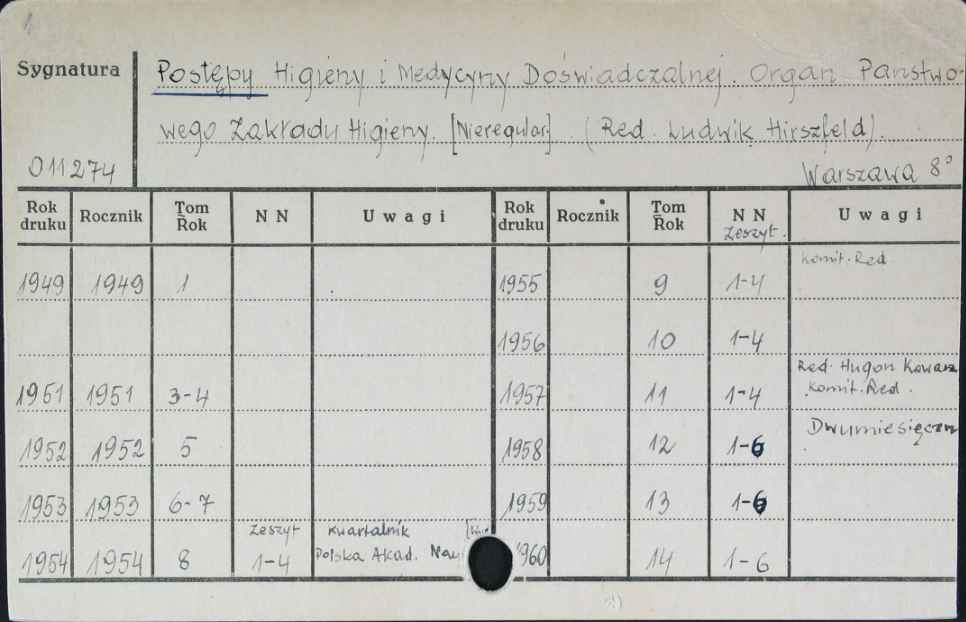 Sygnatura
Postępy Higieny i Medycyny Doświadczalnej. Organ Państwo-
wego Zakładu Higieny. [Nieregular.] . (Red. Ludwik Hirszfeld).
011274
Warszawa 8°
Rok druku Rocznik Tom Rok NN Uwagi Rok druku Rocznik Tom Rok NN Zeszyt. Uwagi
Komit. Red
1949 1949 1 1955 9 1-4
1956 10 1-4
Red. Hugon Kowarz
1951 1951 3-4 1957 11 1-4 Komit. Red.
Dwumiesięczn
1952 1952 5 1958 12 1-6
1953 1953 6-7 1959 13 1-6
Zeszyt Kwartalnik
1954 1954 8 1-4 Polska Akad. Nau 960 14 1-6